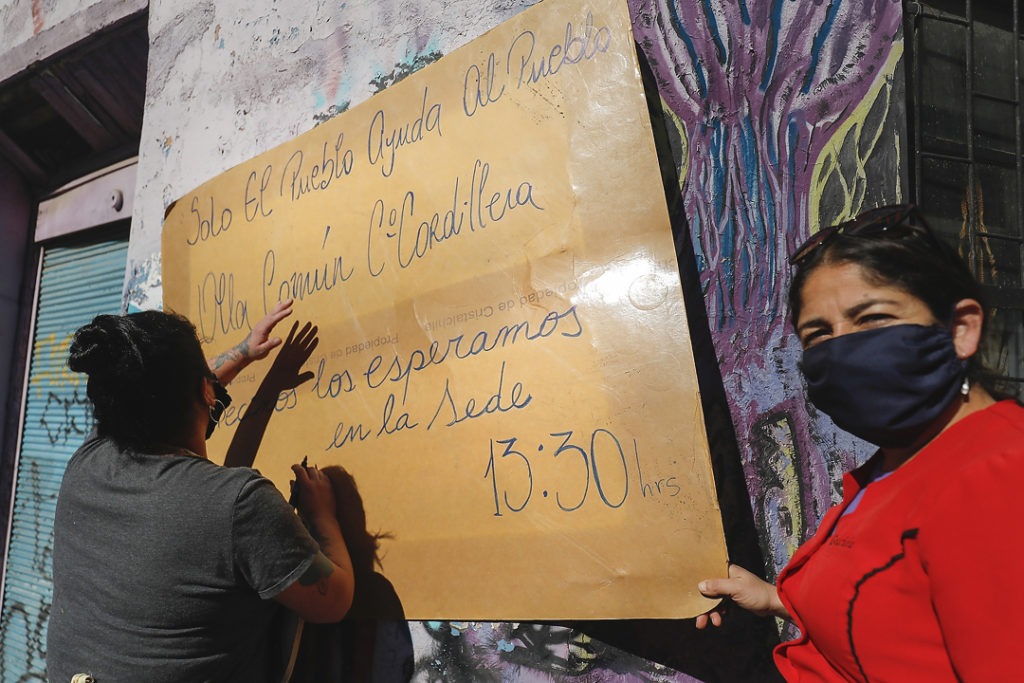 Solo El Pueblo Ayuda Al Pueblo
Olla Común Cº Cordillera
Propiedad de Cristalchile
Propiedad de
los esperamos
en la sede
13:30 hrs